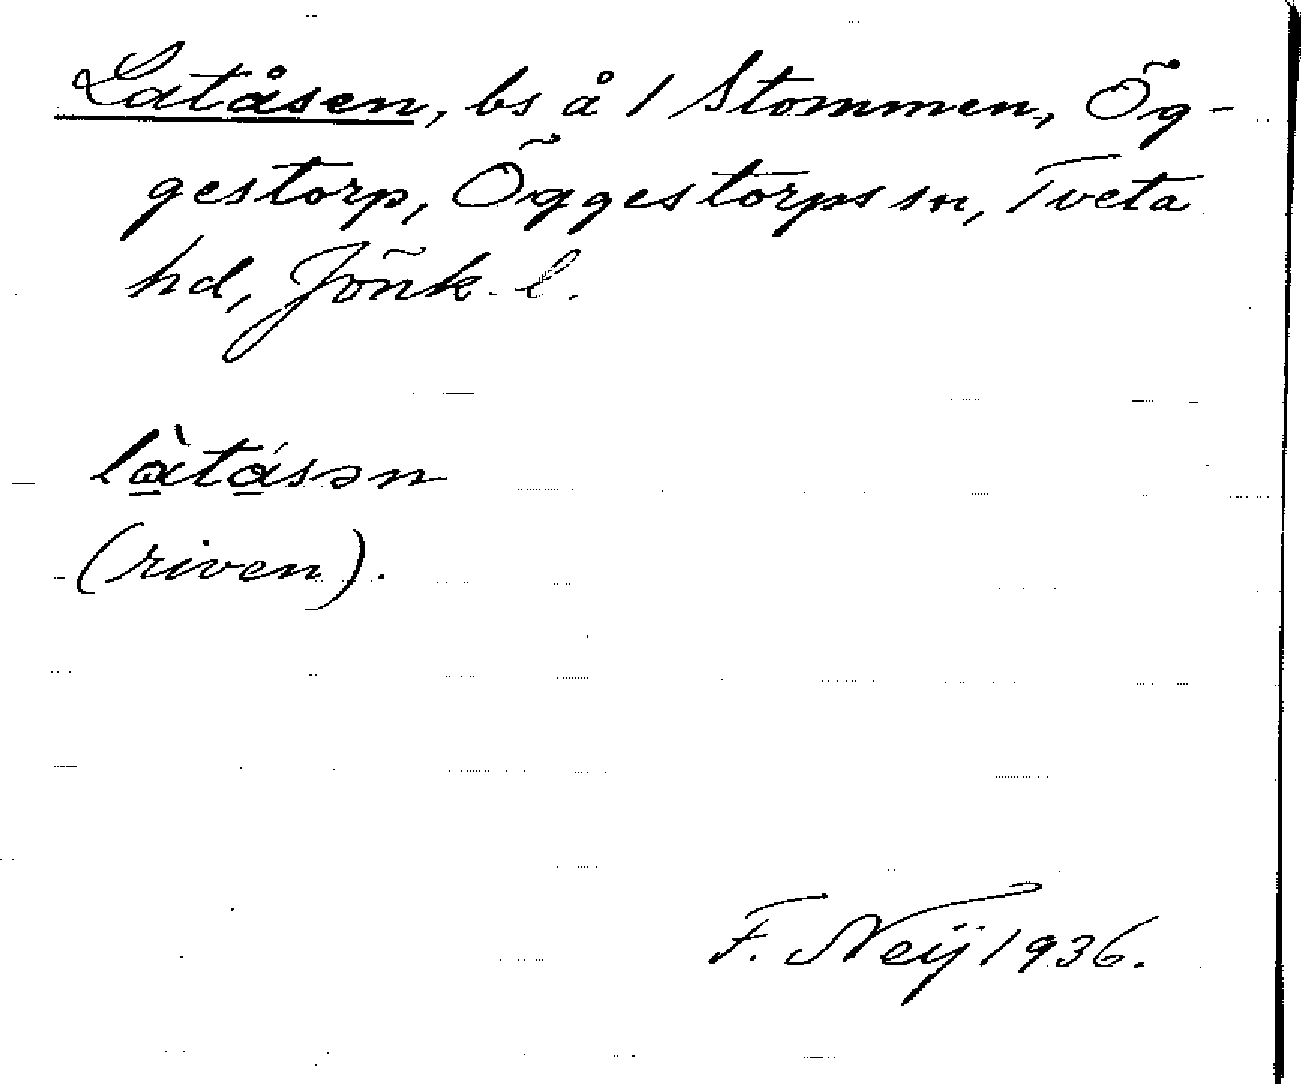 Latåsen, bs å 1 Stommen, Ög-
gestorp, Öggestorps sn, Tveta
hd, Jönk. l.
là̱tá̱sən
(riven).
F. Neij 1936.